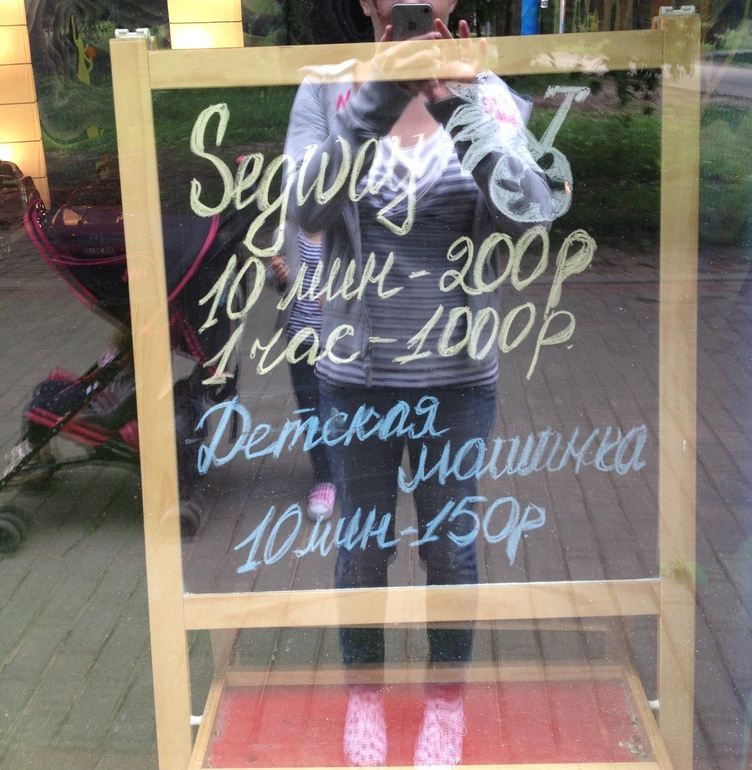 Segway
10 мин - 200р
1 час - 1000р
Детская
машинка
10 мин - 150р